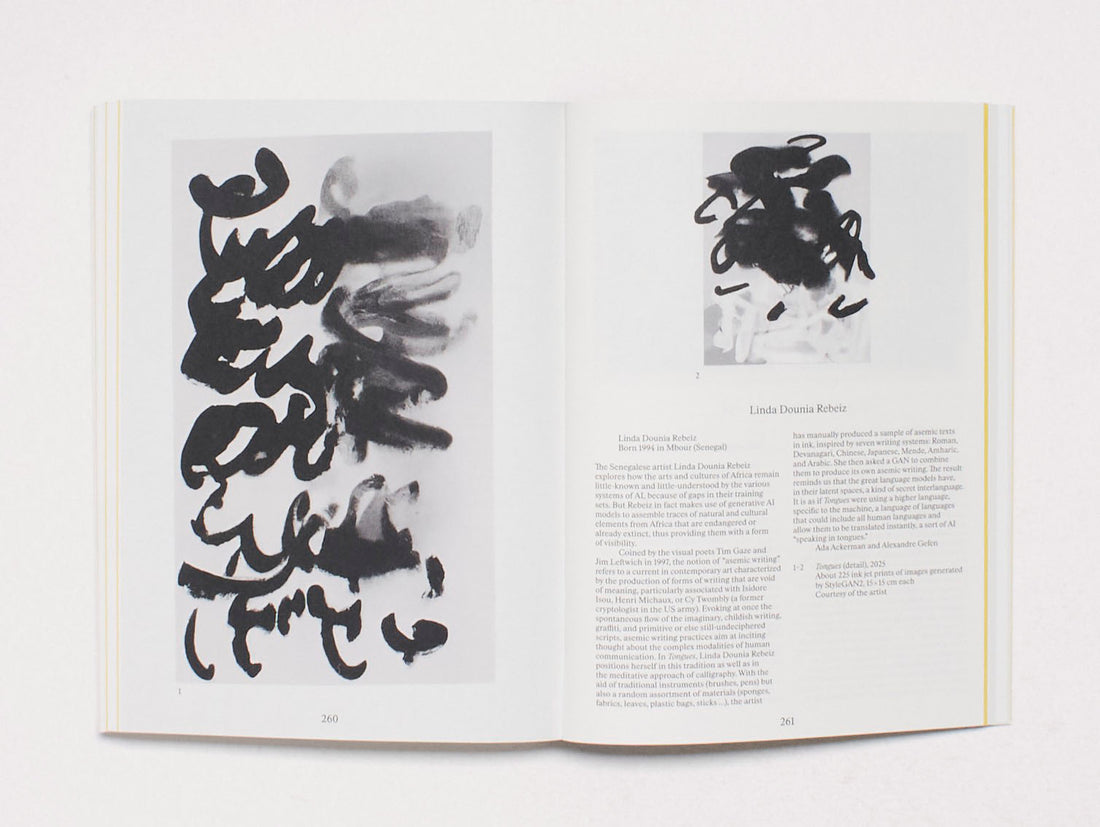 1
260
2
Linda Dounia Rebeiz
Linda Dounia Rebeiz
Born 1994 in Mbour (Senegal)
The Senegalese artist Linda Dounia Rebeiz
explores how the arts and cultures of Africa remain
little-known and little-understood by the various
systems of AI, because of gaps in their training
sets. But Rebeiz in fact makes use of generative AI
models to assemble traces of natural and cultural
elements from Africa that are endangered or
already extinct, thus providing them with a form
of visibility.
Coined by the visual poets Tim Gaze and
Jim Leftwich in 1997, the notion of "asemic writing"
refers to a current in contemporary art characterized
by the production of forms of writing that are void
of meaning, particularly associated with Isidore
Isou, Henri Michaux, or Cy Twombly (a former
cryptologist in the US army). Evoking at once the
spontaneous flow of the imaginary, childish writing,
graffiti, and primitive or else still-undeciphered
scripts, asemic writing practices aim at inciting
thought about the complex modalities of human
communication. In Tongues, Linda Dounia Rebeiz
positions herself in this tradition as well as in
the meditative approach of calligraphy. With the
aid of traditional instruments (brushes, pens) but
also a random assortment of materials (sponges,
fabrics, leaves, plastic bags, sticks ...), the artist
has manually produced a sample of asemic texts
in ink, inspired by seven writing systems: Roman,
Devanagari, Chinese, Japanese, Mende, Amharic,
and Arabic. She then asked a GAN to combine
them to produce its own asemic writing. The result
reminds us that the great language models have,
in their latent spaces, a kind of secret interlanguage.
It is as if Tongues were using a higher language,
specific to the machine, a language of languages
that could include all human languages and
allow them to be translated instantly, a sort of AI
"speaking in tongues."
Ada Ackerman and Alexandre Gefen
1-2 Tongues (detail), 2025
About 225 ink jet prints of images generated
by StyleGAN2, 15 × 15 cm each
Courtesy of the artist
261